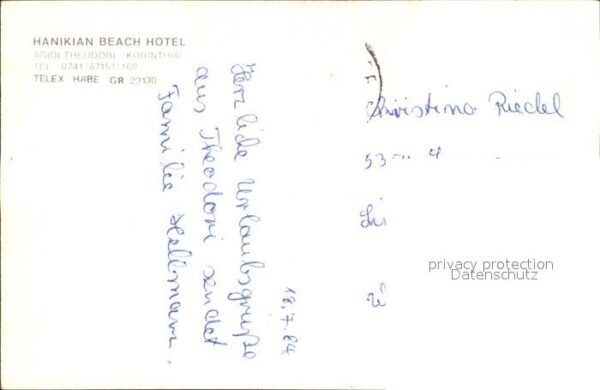 HANIKIAN BEACH HOTEL
AGIOI THEODORI - KORINTHIA
TEL. 0741/67151/160
TELEX HABE GR 23130
Herzliche Urlaubsgrüße
aus Theodori sendet
Familie Hellmann.
12.7.84
Christina Riedel
53 4
privacy protection
Datenschutz